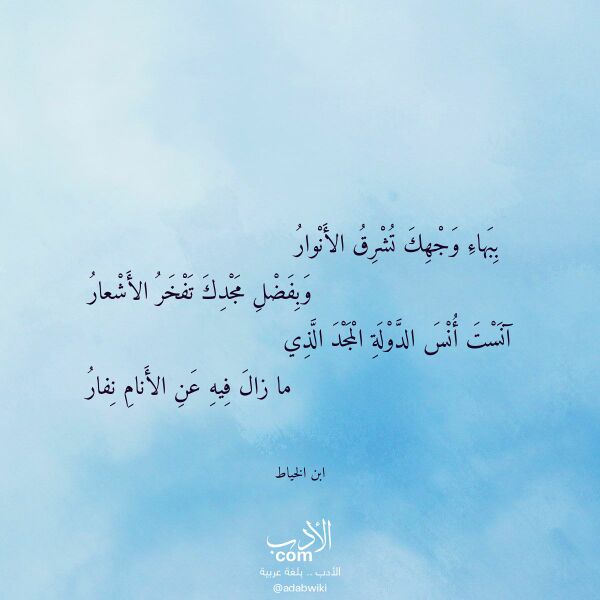 بِبَهاءِ وَجْهِكَ تُشْرِقُ الأَنْوارُ
وَبِفَضْلِ مَجْدِكَ تَفْخَرُ الأَشْعارُ
آنَسْتَ أُنْسَ الدَّوْلَةِ الْمَجْدَ الَّذِي
ما زالَ فِيهِ عَنِ الأَنامِ نِفارُ
ابن الخياط
الأدب
com
الأدب .. بلغة عربية
@adabwiki